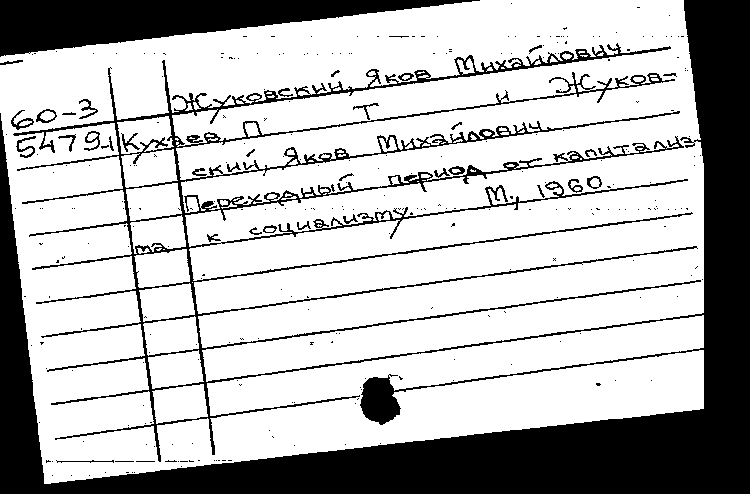 60-3
5479-1
Жуковский, Яков Михайлович.
Кухаев, П Т и Жуков-
ский, Яков Михайлович.
Переходный период от капитализ-
ма к социализму. М., 1960.